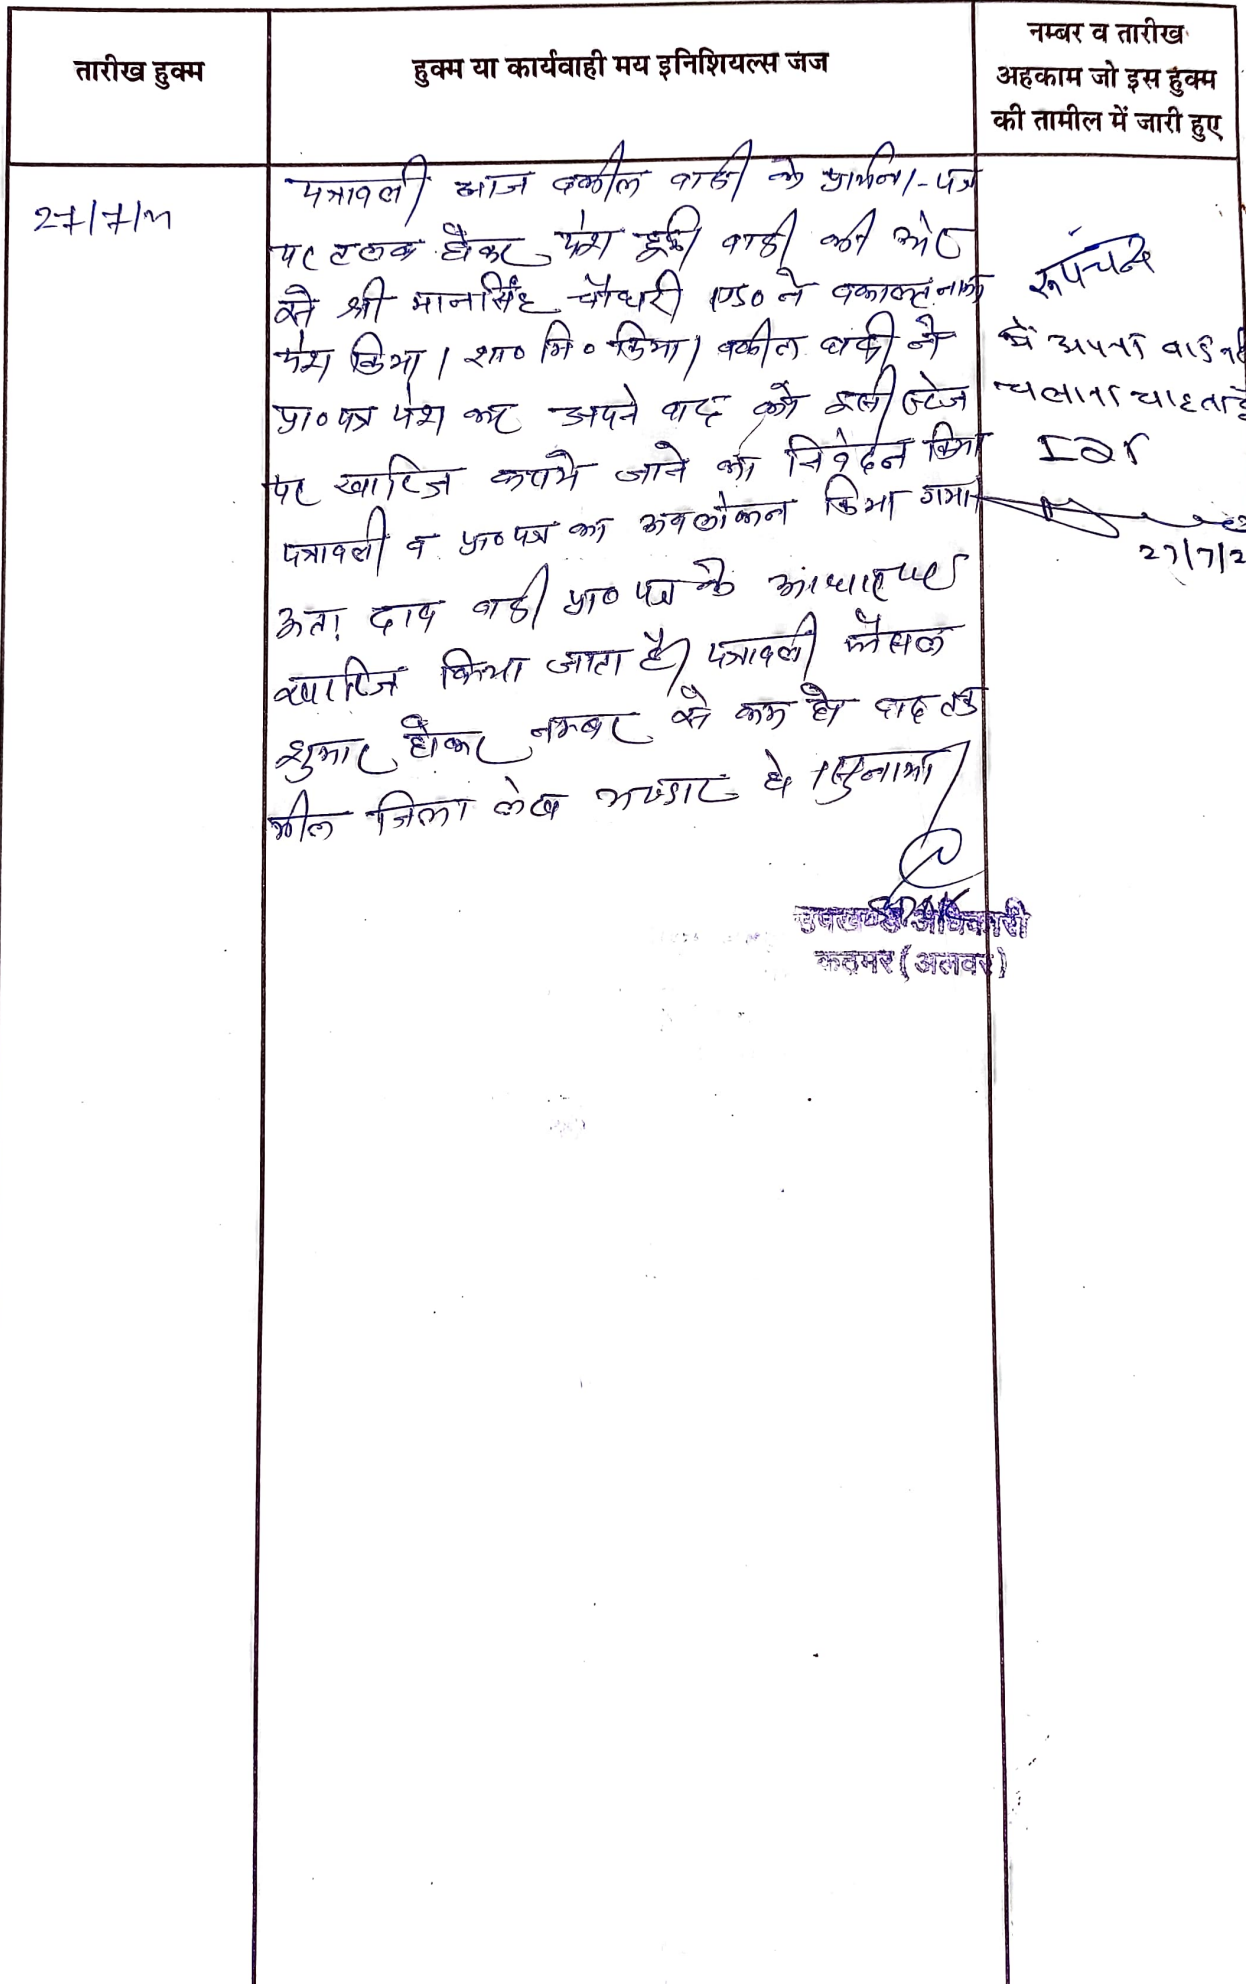 तारीख हुक्म
हुक्म या कार्यवाही मय इनिशियल्स जज
नम्बर व तारीख
अहकाम जो इस हुक्म
की तामील में जारी हुए
27/7/21
पत्रावली आज वकील वादी के प्रार्थना-पत्र
पर तलब होकर पेश हुई। वादी की ओर
से श्री मानसिंह चौधरी एड० ने वकालतनामा
पेश किया। शा० मि० किया। वकील वादी ने
प्रा० पत्र पेश कर अपने वाद को इसी स्टेज
पर खारिज कराये जाने का निवेदन किया
पत्रावली व प्रा० पत्र का अवलोकन किया गया
अतः वाद वादी प्रा० पत्र के आधार पर
खारिज किया जाता है। पत्रावली फैसल
शुमार होकर नम्बर से कम हो बाद
जिला लेख भण्डार हो। सुनाया
उपखण्ड अधिकारी
कठूमर (अलवर)
रूपचन्द
में अपना वाद नही
चलाना चाहता हूँ
27/7/2